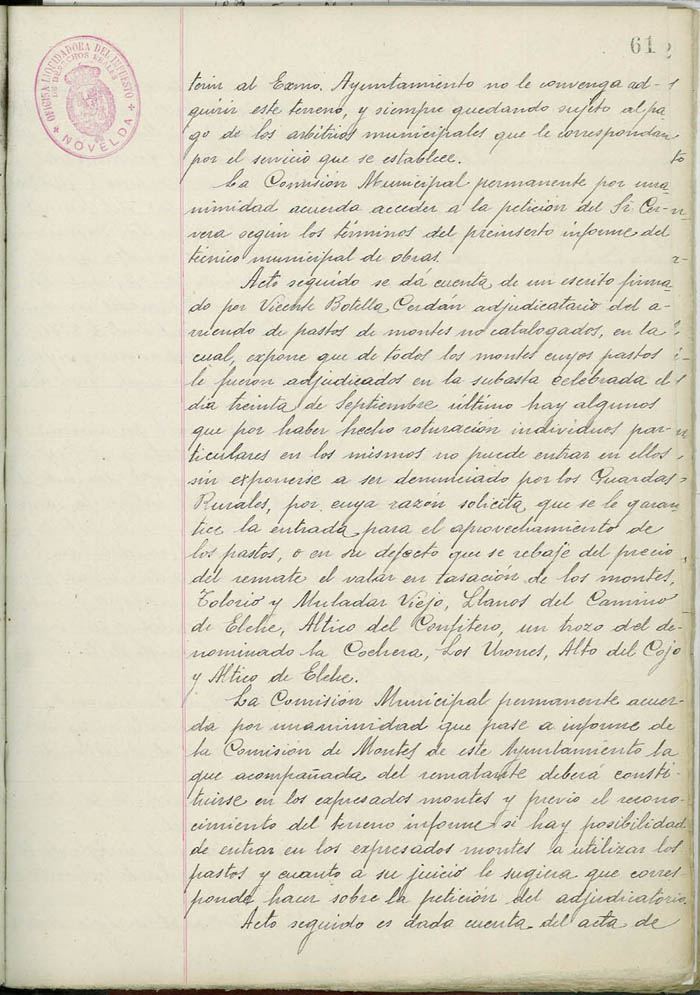 61
OFICINA LIQUIDADORA DEL IMPUESTO
DE DERECHOS REALES
NOVELDA
terin al Exmo. Ayuntamiento no le convenga ad-
quirir este terreno, y siempre quedando sujeto al pa-
go de los arbitrios municipales que le correspondan
por el servicio que se establece.
La Comisión Municipal permanente por una-
nimidad acuerda acceder a la petición del Sr. Cer-
vera según los términos del preinserto informe del
técnico municipal de obras.
Acto seguido se dá cuenta de un escrito firma-
do por Vicente Botella Cerdán adjudicatario del a-
rriendo de pastos de montes no catalogados, en la
cual, expone que de todos los montes cuyos pastos
le fueron adjudicados en la subasta celebrada el
día treinta de Septiembre último hay algunos
que por haber hecho roturación individuos par-
ticulares en los mismos no puede entrar en ellos
sin exponerse a ser denunciado por los Guardas
Rurales, por cuya razón solicita que se le garan
tice la entrada para el aprovechamiento de
los pastos, o en su defecto que se rebaje del precio
del remate el valar en tasación de los montes,
Tolorio y Muladar Viejo, Llanos del Camino
de Elche, Altico del Confitero, un trozo del de-
nominado la Cochera, Los Urones, Alto del Cojo
y Altico de Elche.
La Comisión Municipal permanente acuer-
da por unanimidad que pase a informe de
la Comisión de Montes de este Ayuntamiento la
que acompañada del rematante deberá consti-
tuirse en los expresados montes y previo el recono-
cimiento del terreno informe si hay posibilidad
de entrar en los expresados montes a utilizar los
pastos y cuanto a su juicio le sugiera que corres
ponde hacer sobre la petición del adjudicatorio.
Acto seguido es dada cuenta del acta de